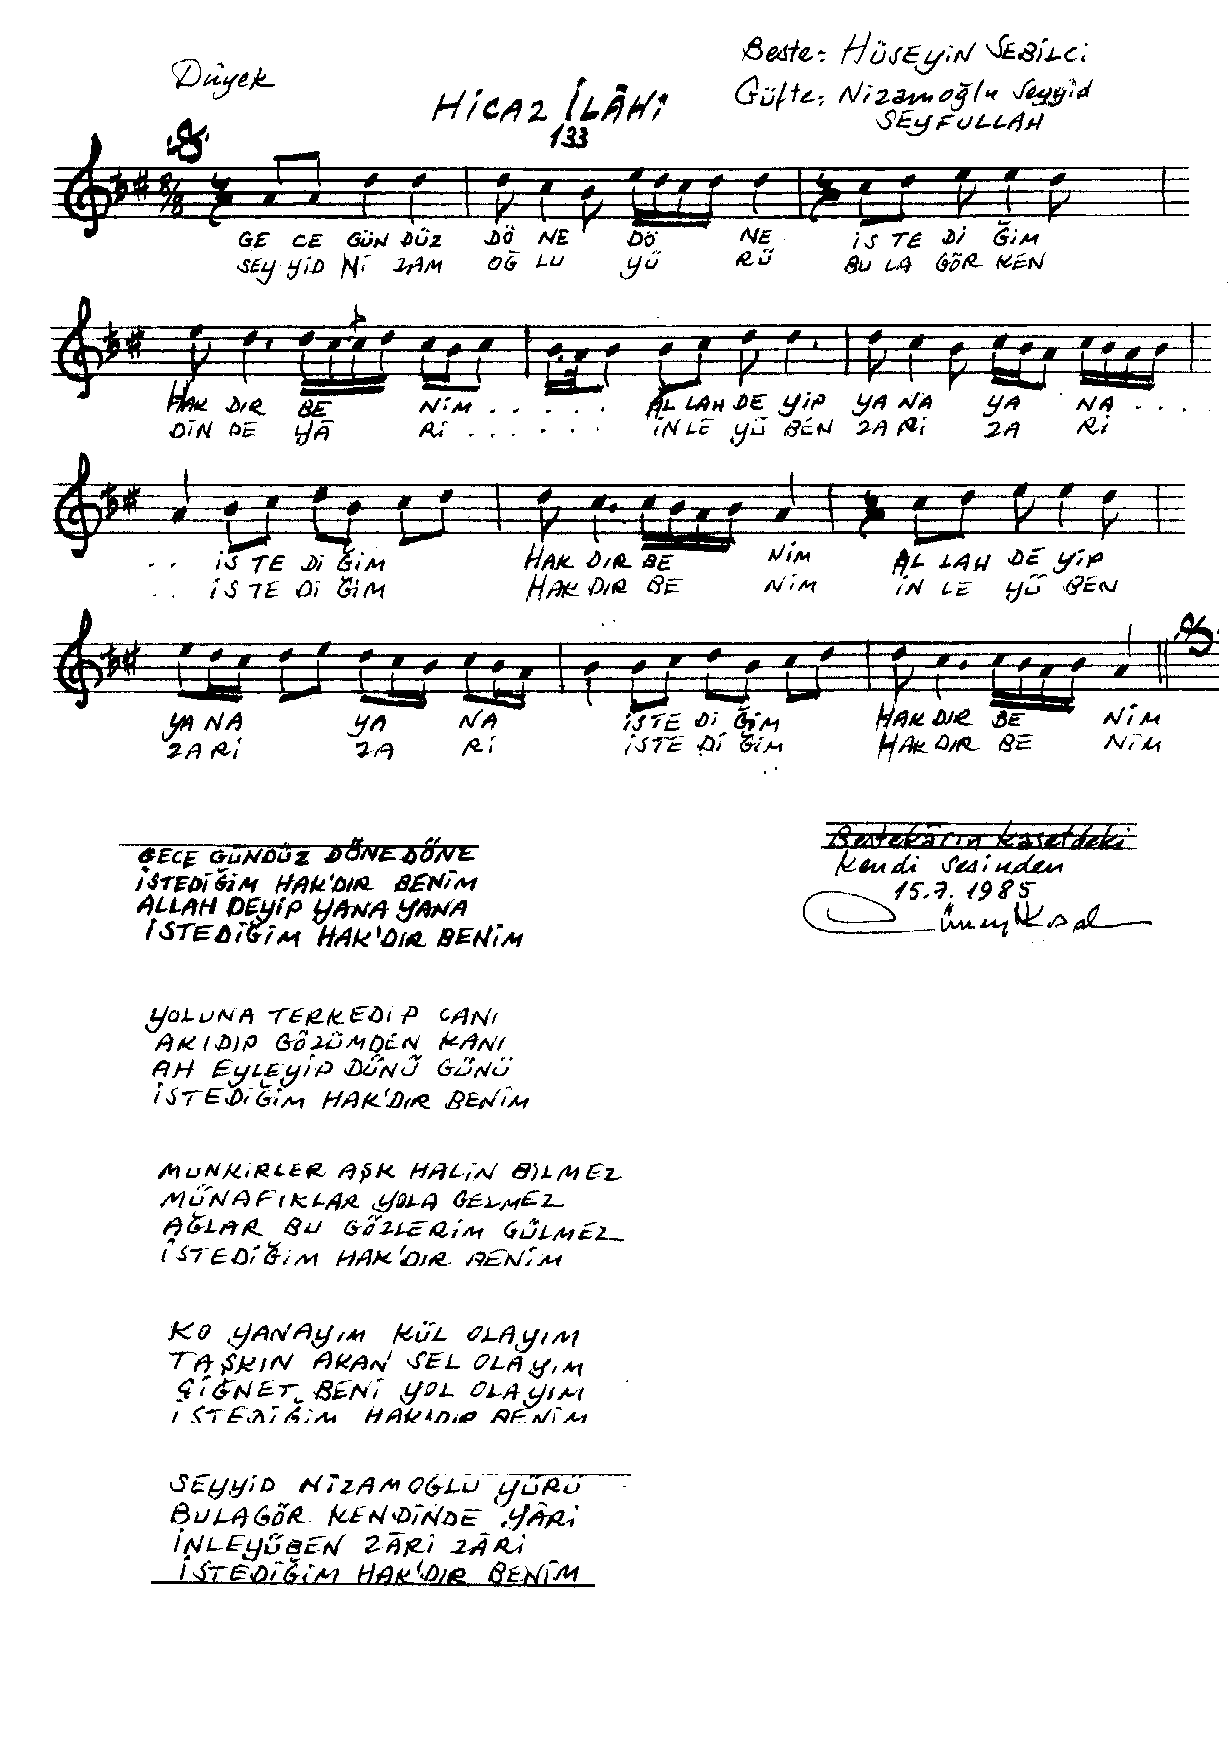 Düyek
HİCAZ İLÂHİ
133
Beste: HÜSEYİN SEBİLCİ
Güfte: Nizamoğlu Seyyid
SEYFULLAH
8/8
GE CE GÜN DÜZ DÖ NE DÖ NE İS TE Dİ ĞİM
SEY YİD Nİ ZAM OĞ LU YÜ RÜ BU LA GÖR KEN
HAK DIR BE NİM . . . . . AL LAH DE YİP YA NA YA NA . . . .
DİN DE YÂ Rİ . . . . . . İN LE YÜ BEN ZA Rİ ZA Rİ
. . İS TE Dİ ĞİM HAK DIR BE NİM AL LAH DE YİP
. . İS TE Dİ ĞİM HAK DIR BE NİM İN LE YÜ BEN
YA NA YA NA İS TE Dİ ĞİM HAK DIR BE NİM
ZA Rİ ZA Rİ İS TE Dİ ĞİM HAK DIR BE NİM
GECE GÜNDÜZ DÖNE DÖNE
İSTEDİĞİM HAK'DIR BENİM
ALLAH DEYİP YANA YANA
İSTEDİĞİM HAK'DIR BENİM
YOLUNA TERKEDİP CANI
AKIDIP GÖZÜMDEN KANI
AH EYLEYİP DÜNÜ GÜNÜ
İSTEDİĞİM HAK'DIR BENİM
MUNKİRLER AŞK HALİN BİLMEZ
MÜNAFIKLAR YOLA GELMEZ
AĞLAR BU GÖZLERİM GÜLMEZ
İSTEDİĞİM HAK'DIR BENİM
KO YANAYIM KÜL OLAYIM
TAŞKIN AKAN SEL OLAYIM
ÇİĞNET BENİ YOL OLAYIM
İSTEDİĞİM HAK'DIR BENİM
SEYYİD NİZAMOĞLU YÜRÜ
BULAGÖR KENDİNDE YÂRİ
İNLEYÜBEN ZÂRİ ZÂRİ
İSTEDİĞİM HAK'DIR BENİM
Bestekârın kasetdeki
kendi sesinden
15.7.1985
Cüneyt Kosal